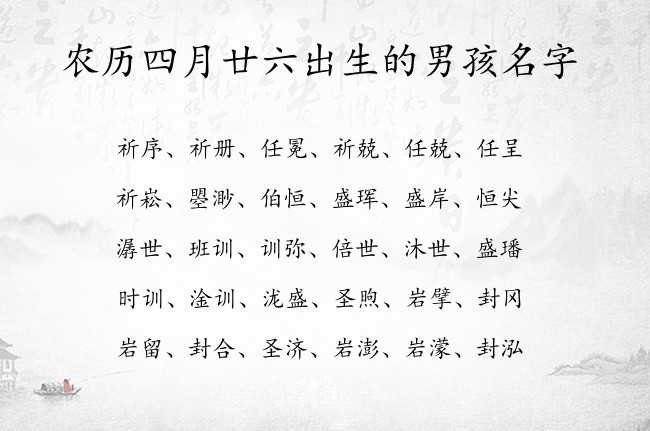 农历四月廿六出生的男孩名字
祈序、祈册、任冕、祈兢、任兢、任呈
祈崧、曌渺、伯恒、盛珲、盛岸、恒尖
潺世、班训、训弥、倍世、沐世、盛璠
时训、淦训、泷盛、圣煦、岩擘、封冈
岩留、封合、圣济、岩澎、岩濛、封泓